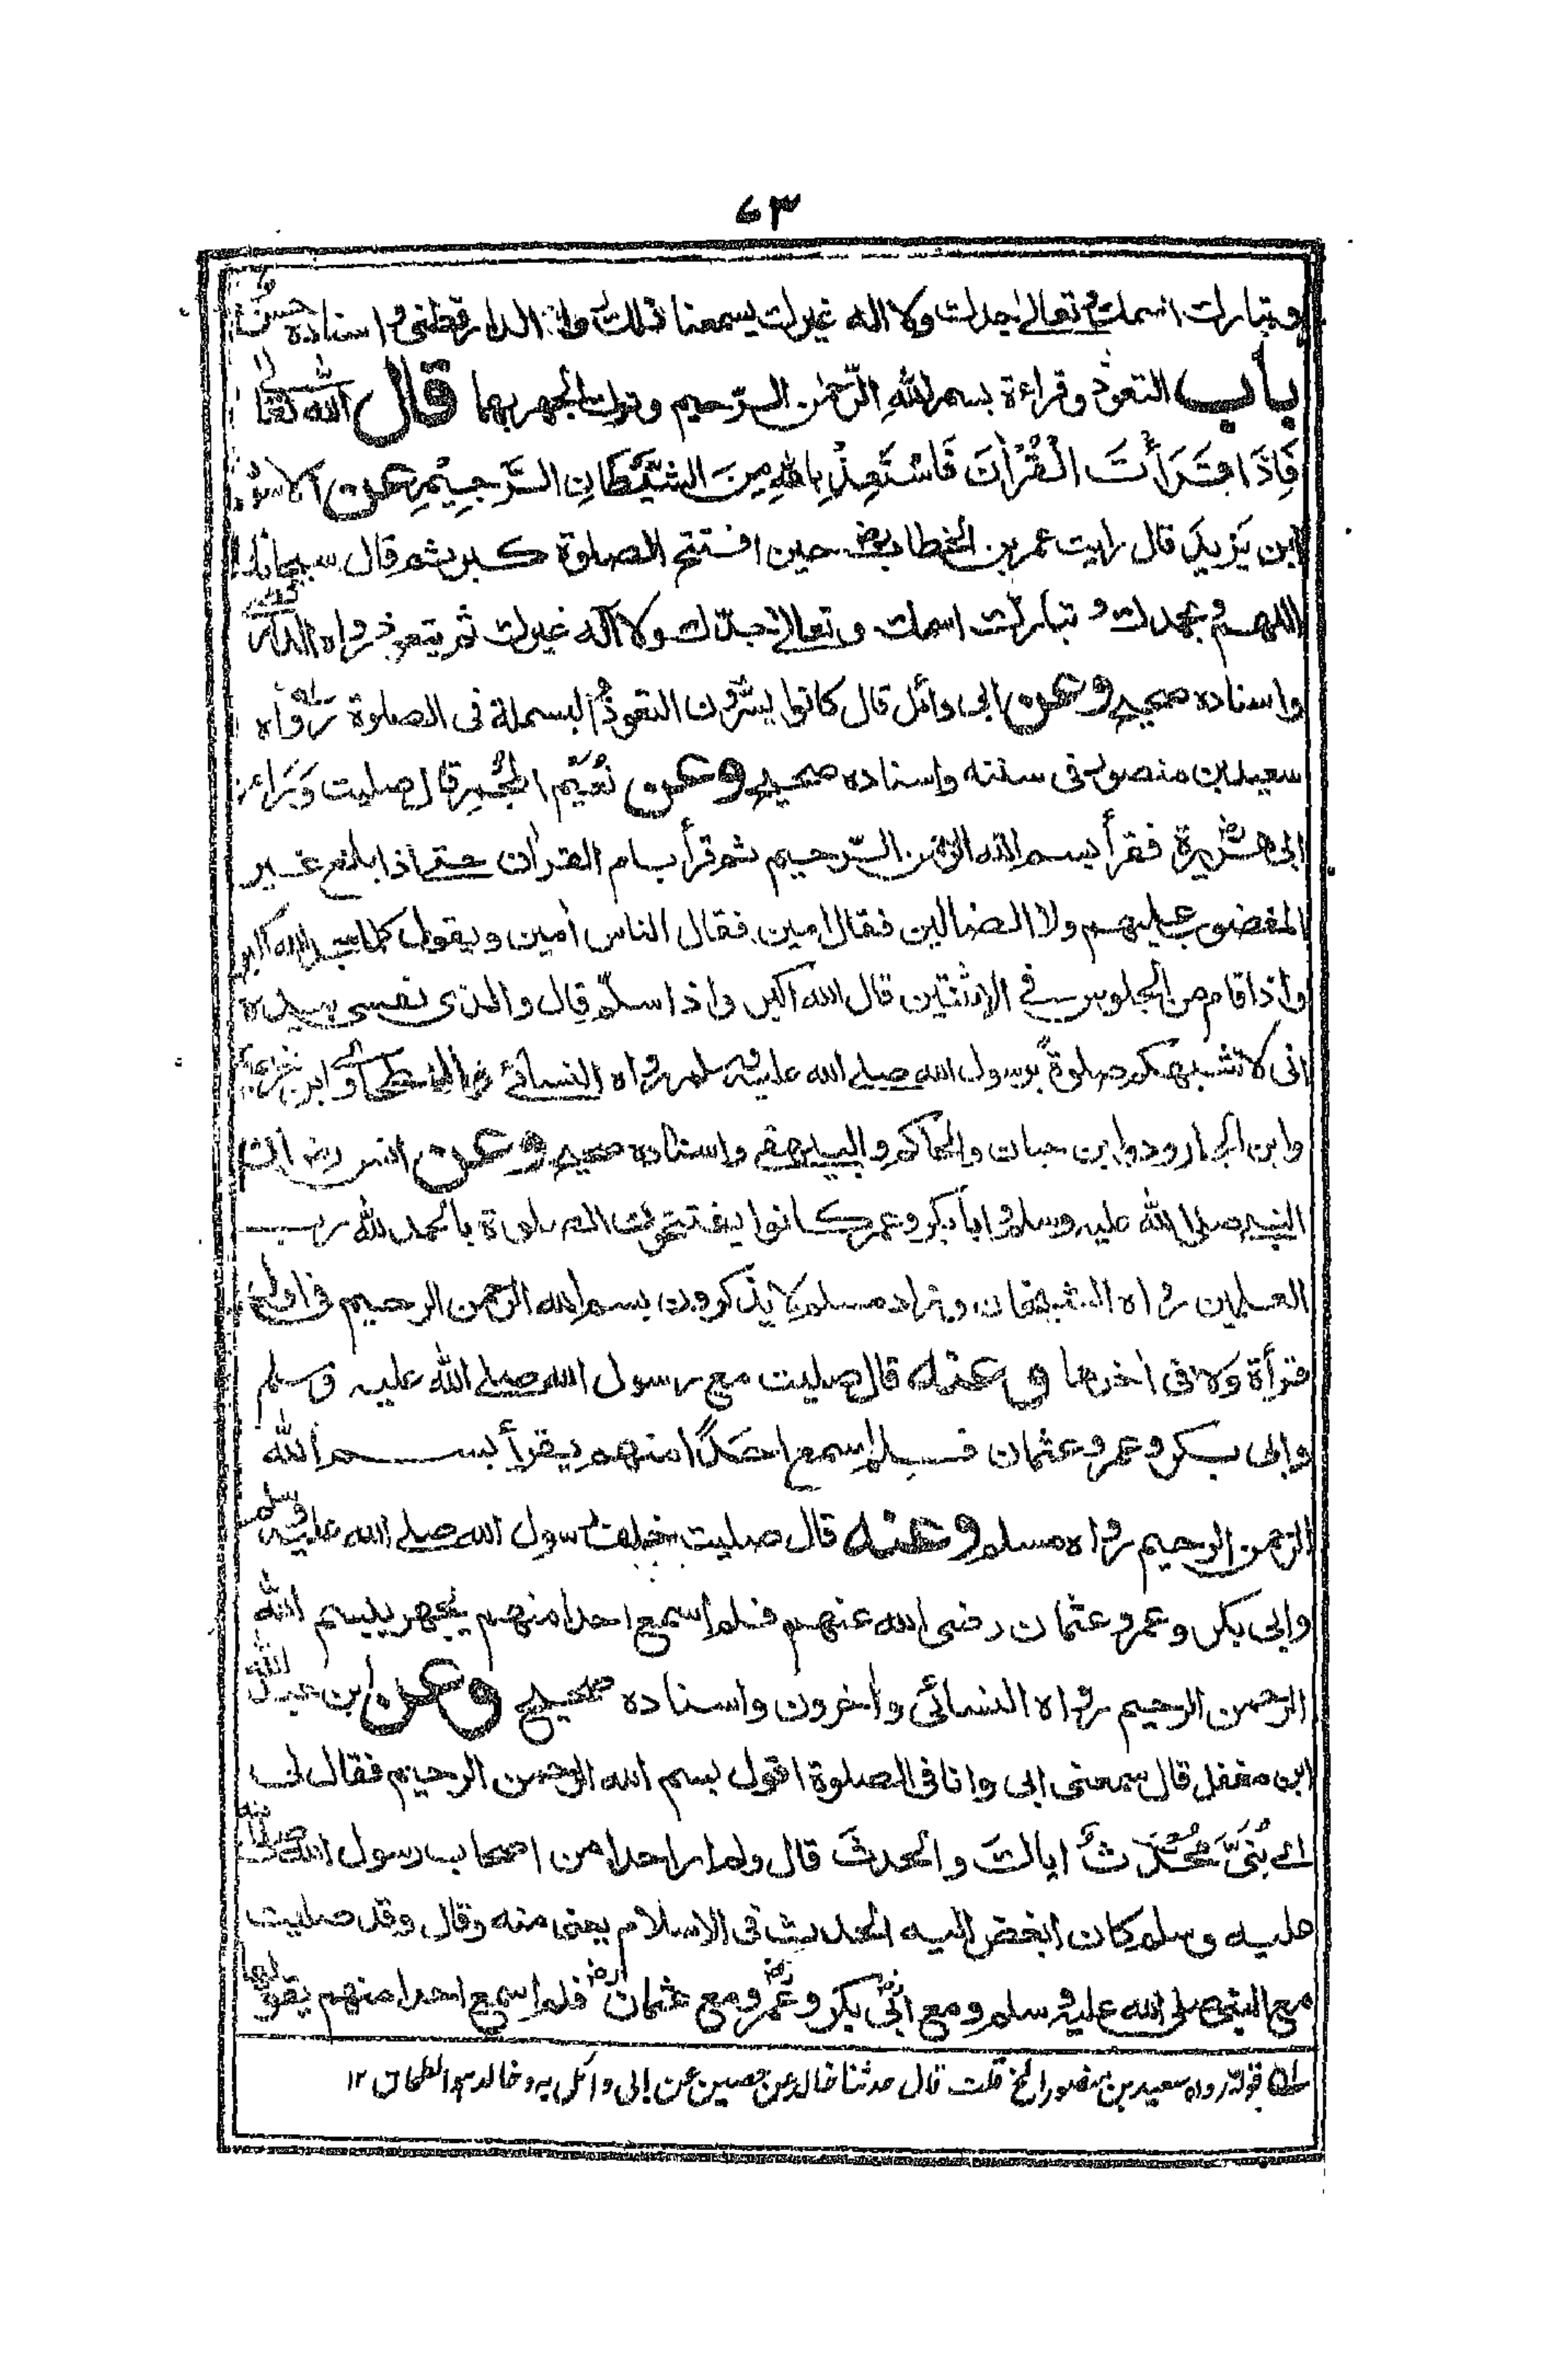 ٧٣
وتبارك اسمك وتعالى جدك ولا اله غيرك يسمعنا ذلك الدارقطني واسناده حسن
باب التعوذ وقراءة بسم اللهِ الرّحمٰن الرّحيم وترك الجهر بهما قال الله تعالى
فَاِذَا قَرَأْتَ الْقُرْاٰنَ فَاسْتَعِذْ بِاللهِ مِنَ الشَّيْطَانِ الرَّجِيْمِ عن الاسود
ابن يَزيدَ قال رايت عمر بن الخطاب رض حين افتتح الصلوة كبر ثم قال سبحانك
اللهم وبحمدك و تبارك اسمك وتعالى جدّك ولا اله غيرك ثم يتعوذ رواه الدارقطني
واسناده صحيح وعن ابى وائل قال كانوا يسرّون التعوذ والبسملة فى الصلوة رواه
سعيد بن منصور فى سننه واسناده صحيح وعن نُعَيْم المُجْمِر قال صليت وَرَاء
ابى هريرة رض فقرأ بسم الله الرحمن الرّحيم ثم قرأ بام القراٰن حتى اذا بلغ غير
المغضوب عليهم ولا الضالين فقال اٰمين فقال الناس اٰمين ويقول كلما سجد الله اكبر
واذا قام من الجلوس فى الاثنتين قال الله اكبر واذا سلّم قال والذى نفسى بيده
انى لاشبهكم صلوةً برسول الله صلى الله عليه وسلم رواه النسائى والطحاوى وابن خزيمة
وابن الجارود وابن حبان والحاكم والبيهقى واسناده صحيح وعن انس رض ان
النبى صلى الله عليه وسلم وابا بكر وعمر كانوا يفتتحون الصلوة بالحمد لله رب
العلمين رواه الشيخان وزاد مسلم لا يذكرون بسم الله الرحمن الرحيم فى اول
قرأة ولا فى اٰخرها وعنه قال صليت مع رسول الله صلى الله عليه وسلم
وابى بكر وعمر وعثمان فلم اسمع احَدًا منهم يقرأ بسم الله
الرحمن الرحيم رواه مسلم وعنه قال صليت خلف رسول الله صلى الله عليه وسلم
وابى بكر وعمر وعثمان رضى الله عنهم فلم اسمع احدا منهم يجهر ببسم الله
الرحمن الرحيم رواه النسائى واٰخرون واسناده صحيح وعن ابن عبد الله
ابن مغفل قال سمعنى ابى وانا فى الصلوة اقول بسم الله الرحمن الرحيم فقال لى
اى بُنَىَّ مُحْدَثٌ اياك والحدث قال ولم ار احدا من اصحاب رسول الله صلى الله
عليه وسلم كان ابغض اليه الحدث فى الاسلام يعنى منه وقال وقد صليت
مع النبى صلى الله عليه وسلم ومع ابى بكر رض وعمر رض ومع عثمان رض فلم اسمع احدا منهم يقولها
له قوله رواه سعيد بن منصور الخ قلت قال حدثنا خالد عن حصين عن ابى وائل به وخالد هو الطحان ١٢